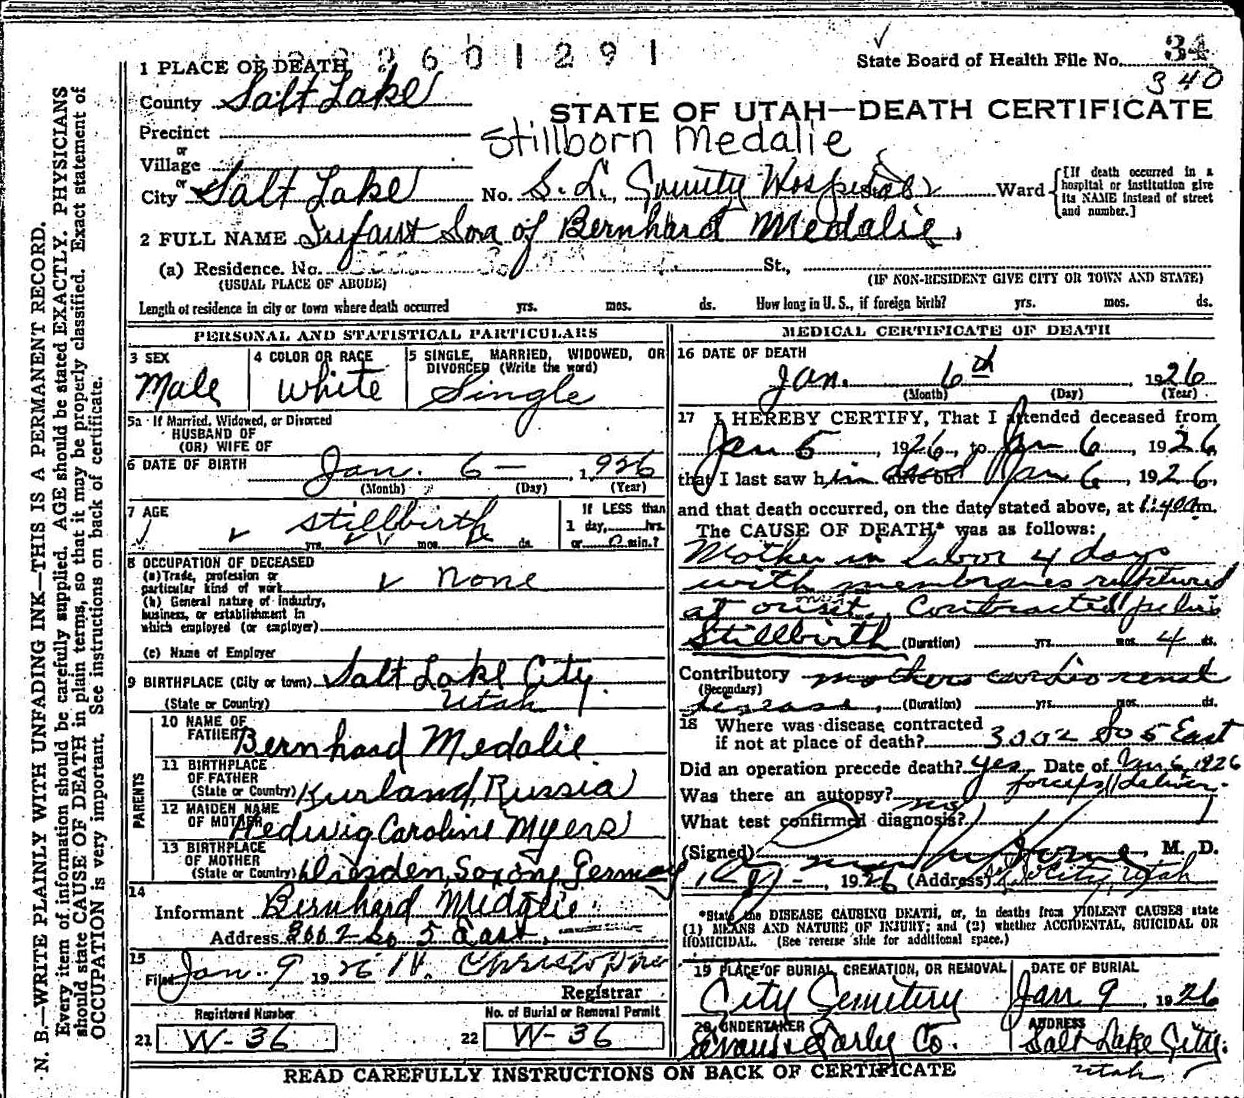 2601291
State Board of Health File No. 34
340
1 PLACE OF DEATH
County Salt Lake
STATE OF UTAH—DEATH CERTIFICATE
Precinct
or
Stillborn Medalie
Village
or
City Salt Lake No. S. L. County Hospital Ward
[If death occurred in a hospital or institution give its NAME instead of street and number.]
2 FULL NAME Infant Son of Bernhard Medalie.
(a) Residence. No. St.,
(USUAL PLACE OF ABODE) (IF NON-RESIDENT GIVE CITY OR TOWN AND STATE)
Length of residence in city or town where death occurred yrs. mos. ds. How long in U. S., if foreign birth? yrs. mos. ds.
PERSONAL AND STATISTICAL PARTICULARS
3 SEX
Male
4 COLOR OR RACE
White
5 SINGLE, MARRIED, WIDOWED, OR DIVORCED (Write the word)
Single
5a If Married, Widowed, or Divorced
HUSBAND OF
(OR) WIFE OF
6 DATE OF BIRTH
Jan. 6 — 1926
(Month) (Day) (Year)
7 AGE
stillbirth
yrs. mos. ds.
If LESS than
1 day, hrs.
or 0 min.?
8 OCCUPATION OF DECEASED
(a) Trade, profession or
particular kind of work none
(b) General nature of industry,
business, or establishment in
which employed (or employer)
(c) Name of Employer
9 BIRTHPLACE (City or town) Salt Lake City.
(State or Country) Utah
PARENTS
10 NAME OF
FATHER Bernhard Medalie
11 BIRTHPLACE
OF FATHER
(State or Country) Kurland, Russia
12 MAIDEN NAME
OF MOTHER Hedwig Caroline Myers
13 BIRTHPLACE
OF MOTHER
(State or Country) Dresden, Saxony Germany
14
Informant Bernhard Medalie
Address 3002 So 5 East.
15
Filed Jan. 9 1926
Registrar
Registered Number
21 W-36
No. of Burial or Removal Permit
22 W-36
MEDICAL CERTIFICATE OF DEATH
16 DATE OF DEATH
Jan. 6th 1926
(Month) (Day) (Year)
17 I HEREBY CERTIFY, That I attended deceased from
Jan 5, 1926, to Jan 6, 1926,
that I last saw him alive on dead Jan 6, 1926,
and that death occurred, on the date stated above, at 1:40am.
The CAUSE OF DEATH* was as follows:
Mother in labor 4 days
with membranes ruptured
at onset. Contracted pelvis
Stillbirth (Duration) yrs. mos. 4 ds.
Contributory mothers cardio renal
(Secondary)
disease. (Duration) yrs. mos. ds.
18 Where was disease contracted
if not at place of death? 3002 So 5 East
Did an operation precede death? yes Date of Jan 6, 1926
forceps deliver.
Was there an autopsy? no
What test confirmed diagnosis?
(Signed) M. D.
1926 (Address) City, Utah
*State the DISEASE CAUSING DEATH, or, in deaths from VIOLENT CAUSES state
(1) MEANS AND NATURE OF INJURY; and (2) whether ACCIDENTAL, SUICIDAL OR
HOMICIDAL. (See reverse side for additional space.)
19 PLACE OF BURIAL, CREMATION, OR REMOVAL
City Cemetery
DATE OF BURIAL
Jan 9, 1926
20 UNDERTAKER
Evans & Early Co.
ADDRESS
Salt Lake City.
Utah
READ CAREFULLY INSTRUCTIONS ON BACK OF CERTIFICATE
N. B.—WRITE PLAINLY WITH UNFADING INK—THIS IS A PERMANENT RECORD.
Every item of information should be carefully supplied. AGE should be stated EXACTLY. PHYSICIANS
should state CAUSE OF DEATH in plain terms, so that it may be properly classified. Exact statement of
OCCUPATION is very important. See instructions on back of certificate.